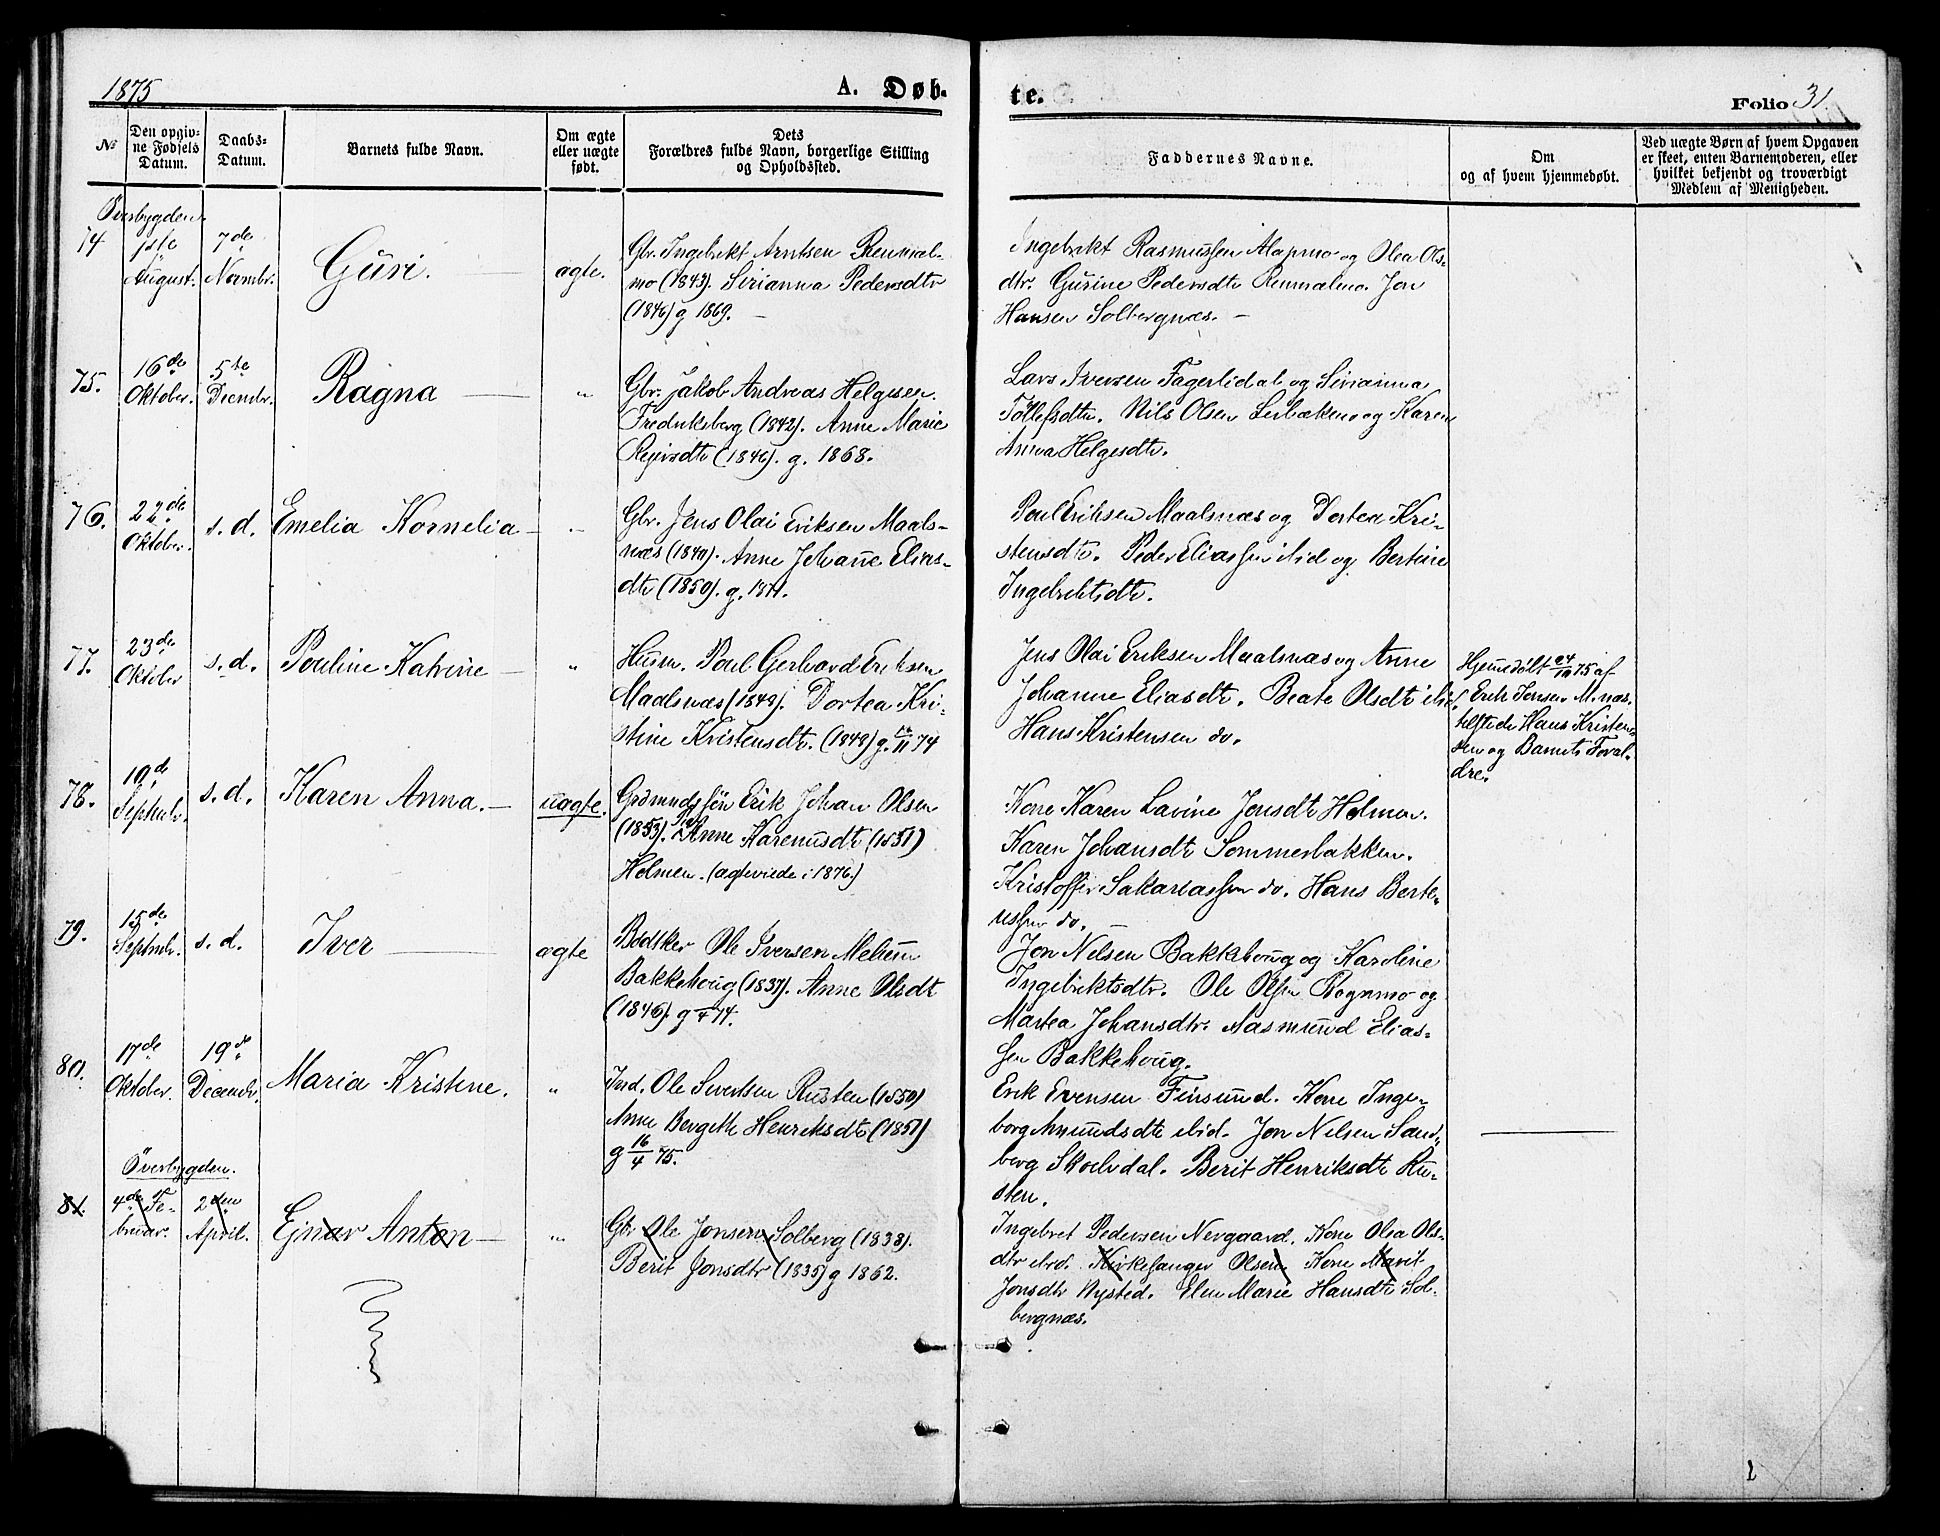 1875
A. Døb-
te.
Folio 31.
№
Den opgiv-
ne Fødsels
Datum.
Daabs-
Datum.
Barnets fulde Navn.
Om ægte
eller uægte
født.
Dets
Forældres fulde Navn, borgerlige Stilling
og Opholdssted.
Faddernes Navne.
Om
og af hvem hjemmedøbt.
Ved uægte Børn af hvem Opgaven
er skeet, enten Barnemoderen, eller
hvilket bekjendt og troværdigt
Medlem af Menigheden.
Överbygden.
74
1ste
August.
7de
Novmbr.
Guri.
ægte.
Gbr. Ingebrikt Arntsen Rennæl-
mo (1843). Sirianna Pedersdtr
(1846) g 1869. —
Ingebrikt Rasmussen Alapmo og Olea Ols-
dtr. Gurine Pedersdtr Rennælmo. Jon
Hansen Solbergnæs. —
75.
16de
Oktober.
5te
Decmbr.
Ragna
"
Gbr. Jakob Andreas Helgesen
Fredriksberg (1842). Anne Marie
(1846). g. 1868.
Lars Iversen Fagerlidal og Sirianna
Tollefsdtr. Nils Olsen og Karen
Anna Helgesdtr.
76.
22de
Oktober.
s. d.
Emelia Kornelia —
"
Gbr. Jens Olai Eriksen Maals-
næs (1840). Anne Johanne Elias-
dtr (1850). g. 1871.
Poul Eriksen Maalsnæs og Dortea Kri-
stensdtr. Peder Eliassen ibid og Bertine
Ingebriktsdtr.
77.
23de
Oktober
s. d.
Pouline Katrine —
"
Husm. Poul Gerhard Eriksen
Maalsnæs (1848). Dortea Kri-
stine Kristensdtr. (1848) g. 74
Jens Olai Eriksen Maalsnæs og Anne
Johanne Eliasdtr. Beate Olsdtr ibid.
Hans Kristensen do.
Hjemmedøbt 24/10 75 af
Erik Jensen M.næs.
Hans Kristen-
sen og Barnets Foræl-
dre.
78.
19de
Septmbr.
s. d.
Karen Anna. —
uægte.
Grdmandssøn Erik Johan Olsen
(1853). Anne Karenusdtr (1851)
Holmen. (ægteviede i 1876.)
Kone Karen Lavine Jensdtr Holmen.
Karen Johansdtr Sommerbakken.
Kristoffer Sakariassen do. Hans Berte-
ussen do. —
79.
15de
Septmbr.
s. d.
Iver —
ægte
Bødtker Ole Iversen Melum
Bakkehoug (1837). Anne Olsdtr
(1846). g 74.
Jon Nelsen Bakkehoug og Karoline
Ingebriktsdtr. Ole Olsen Rognmo og
Martea Johansdtr. Aasmund Elias-
sen Bakkehoug.
80.
17de
Oktober.
19de
Decembr.
Maria Kristine.
"
Ind. Ole Sivertsen Rusten (1850)
Anne Bergitte Henriksdtr (1851)
g 16/4 75.
Erik Evensen Finsund. Kone Inge-
borg Amundsdtr ibid. Jon Nelsen Sand-
berg Skoelvdal. Berit Henriksdtr Ru-
sten.
Överbygden.
81.
4de Fe-
bruar.
2den
April.
Ejnar Anton —
"
Gbr Ole Jonsen Solberg (1838).
Berit Jonsdtr (1835) g 1862.
Ingebret Pedersen Nergaard. Kone Olea Ols-
dtr ibid. Kirkesanger Olsen, Kone Marit
Jonsdtr Nysted. Elen Marie Hansdtr Sol-
bergnæs.